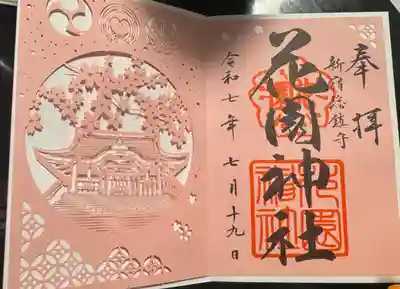 奉拝
新宿総鎮守
花園神社
令和七年 七月十九日
花園神社